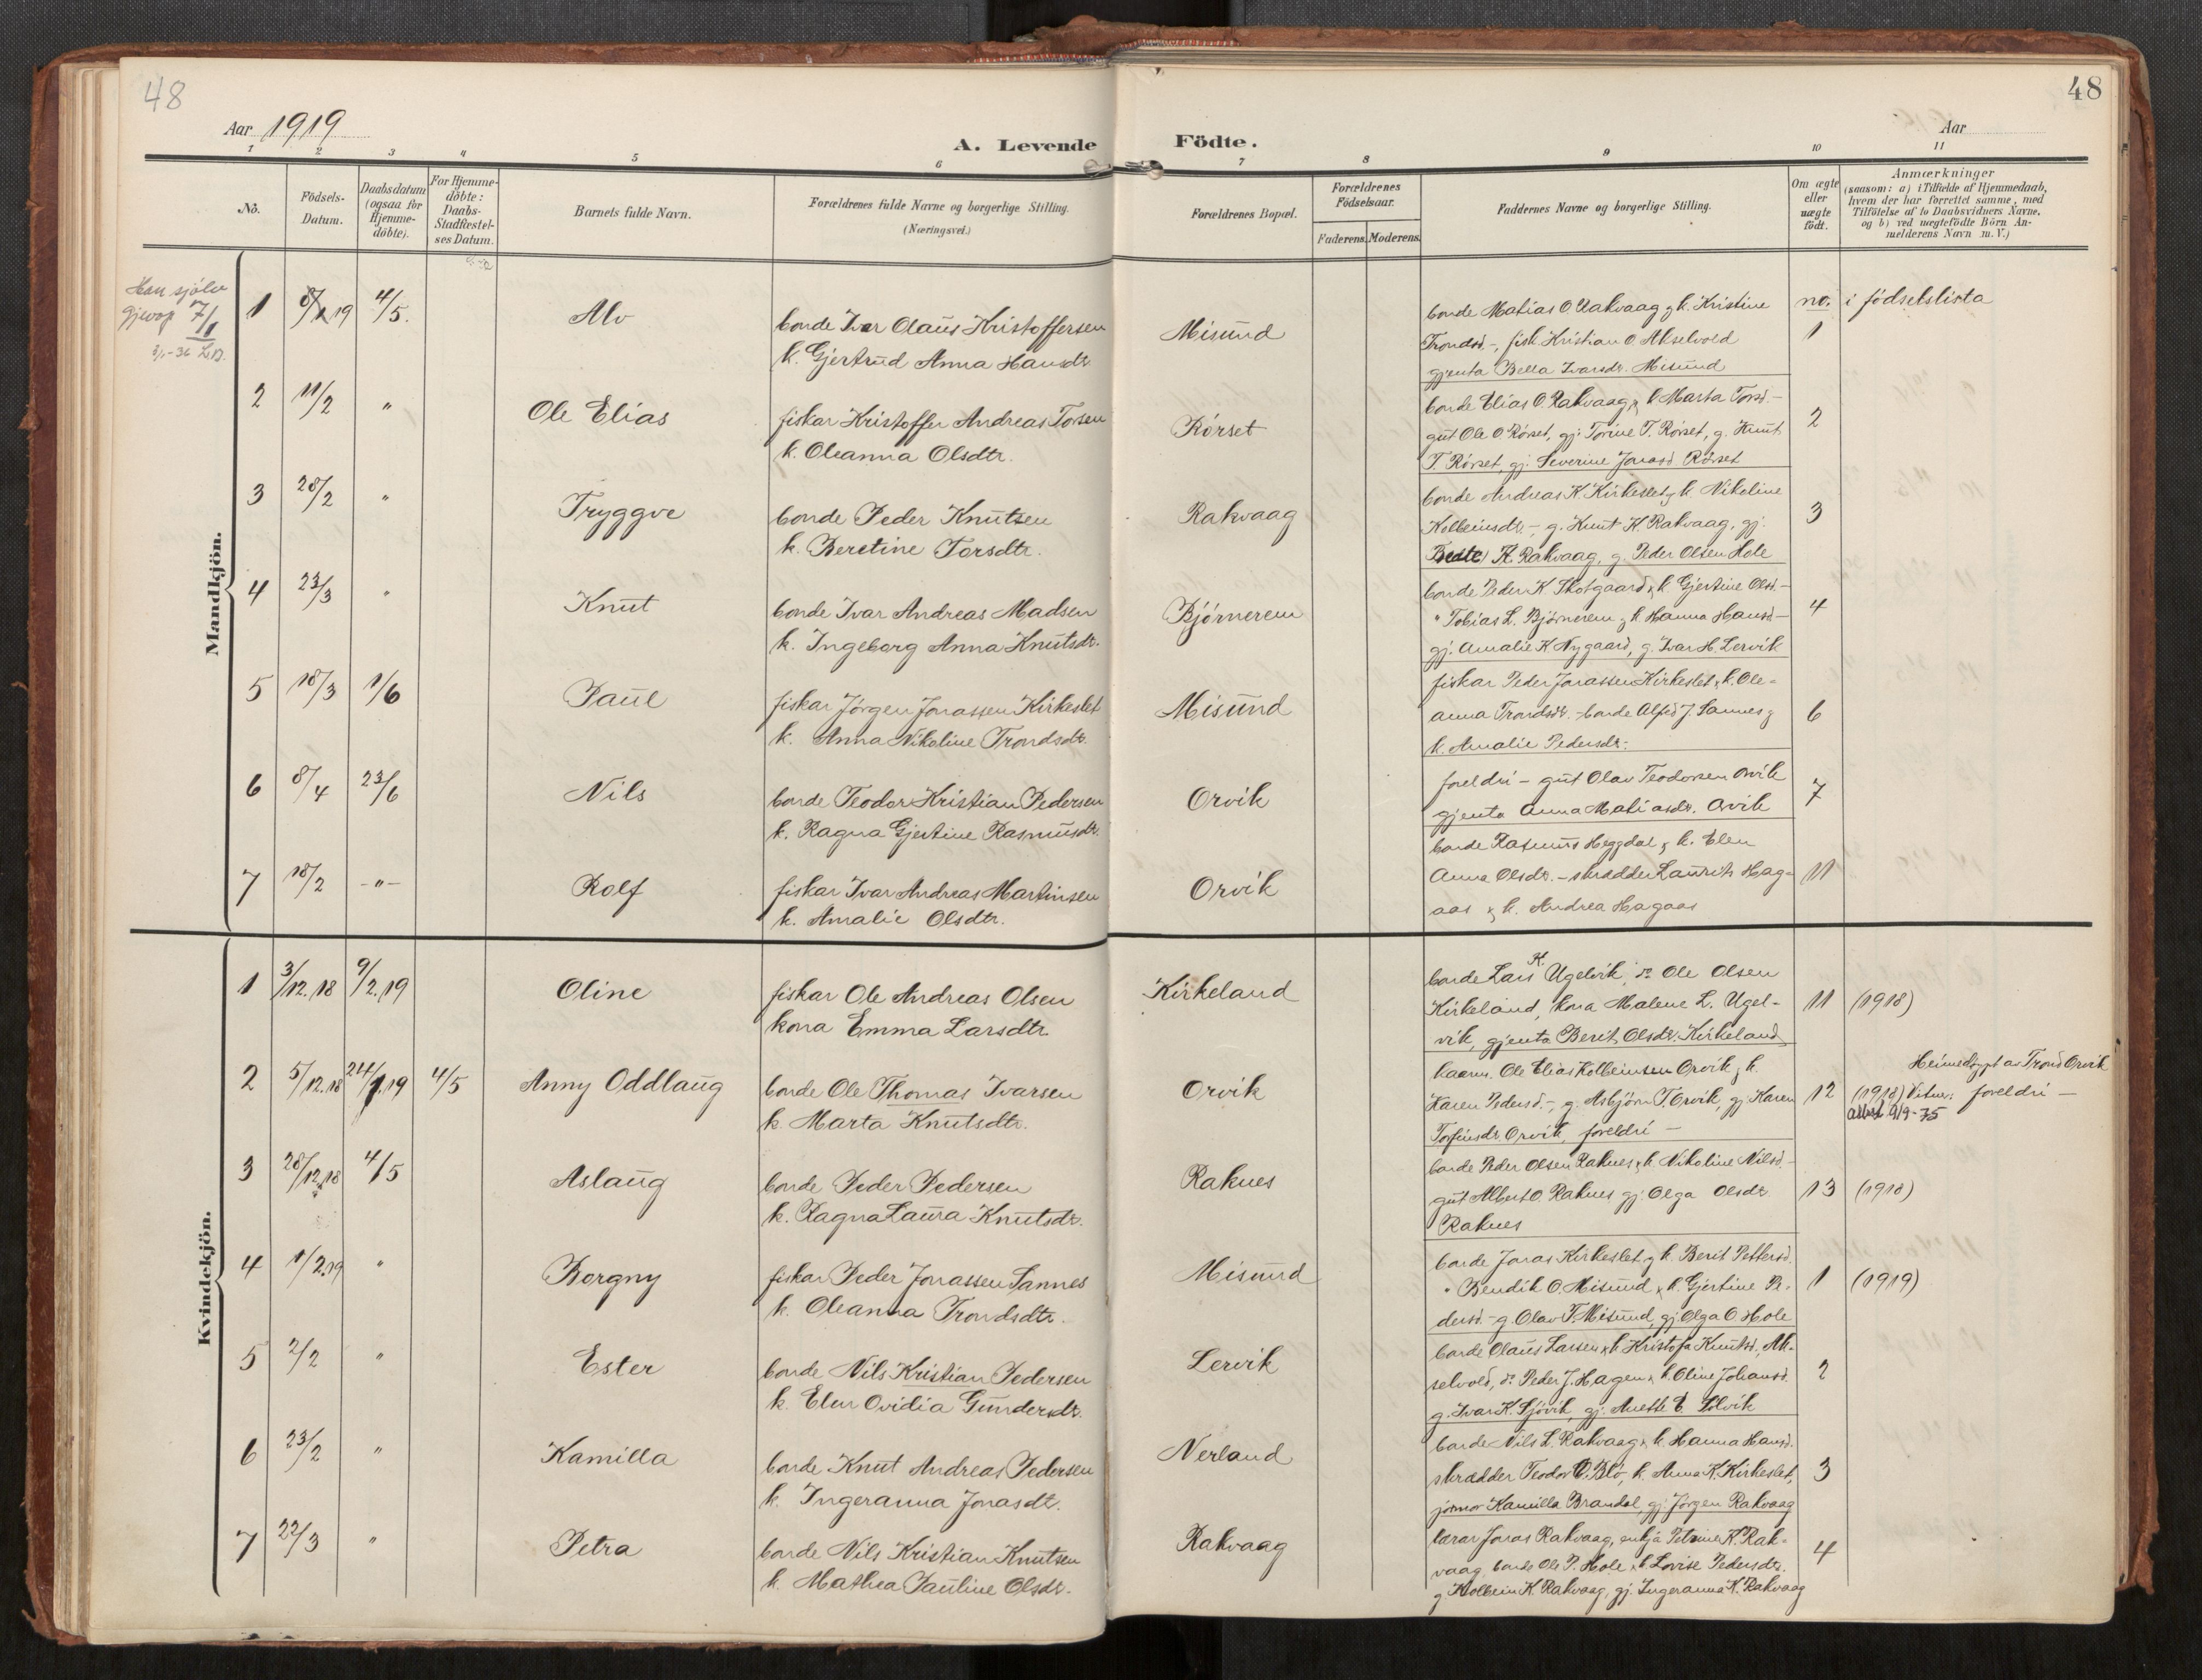 48
48
Aar 1919
A. Levende Födte.
Aar
1 2 3 4 5 6 7 8 9 10 11
No.
Födsels-Datum.
Daabsdatum (ogsaa for Hjemme-döbte).
For Hjemme-döbte: Daabs-Stadfæstel-ses Datum.
Barnets fulde Navn.
Forældrenes fulde Navne og borgerlige Stilling.
(Næringsvei.)
Forældrenes Bopæl.
Forældrenes Födselsaar.
Faderens. Moderens.
Faddernes Navne og borgerlige Stilling.
Om ægte eller uægte födt.
Anmærkninger
(saasom: a) i Tilfælde af Hjemmedaab,
hvem der har forrettet samme, med
Tilföielse af to Daabsvidners Navne,
og b) ved uægtefödte Börn An-
melderens Navn m. V.)
Mandkjön.
Han sjølv
gjevop 7/1
3/1-36
no. i fødselslista
1 8/1 19 4/5. Alv
bonde Ivar Olaus Kristoffersen
k. Gjertrud Anna Hansdt.
Misund
bonde Matias O. Rakvaag & k. Kristine
Trondsd.-, fisk. Kristian O. Akselvold
gjenta Bella Ivarsdr. Misund
1
2 11/2 " Ole Elias
fiskar Kristoffer Andreas Torsen
k. Oleanna Olsdtr.
Rørset
bonde Elias O. Rakvaag & k. Marta Torsd.-
gut Ole O Rørset, gj. Torine T. Rørset, g. Knut
T. Rørset, gj. Severine Jonasd. Rørset
2
3 28/2 " Tryggve
bonde Peder Knutsen
k. Beretine Torsdtr.
Rakvaag
bonde Andreas K. Kirkeslet & k. Nikoline
Kolbeinsdtr. -, g. Knut K. Rakvaag, gj.
K. Rakvaag, g. Peder Olsen Hole
3
4 23/3 " Knut
bonde Ivar Andreas Madsen
k. Ingeborg Anna Knutsdr.
Bjørnerem
bonde Peder K Skotgaard & k. Gjertine Olsd.-
" Tobias L. Bjørnerem & k. Hanna Hansd-
gj. Amalie K Nygaard, g. Ivar H. Lervik
4
5 18/3 1/6 Paul
fiskar Jørgen Jonassen Kirkeslet
k. Anna Nikoline Trondsdtr.
Misund
fiskar Peder Jonassen Kirkeslet & k. Ole-
anna Trondsdr. - bonde Alfred J. Sannes &
k. Amalie Pedersdr.
6
6 8/4 23/6 Nils
bonde Teodor Kristian Pedersen
k. Ragna Gjertine Rasmusdr.
Orvik
foreldri - gut Olav Teodorsen Orvik
gjenta Anna Matiasdr. Orvik
7
7 18/2 -"- Rolf
fiskar Ivar Andreas Martinsen
k. Amalie Olsdtr.
Orvik
bonde Rasmus Heggdal & k. Elen
Anna Olsdr. - skrædder Laurits Hag-
aas & k. Andrea Hagaas
11
Kvindekjön.
1 3/12.18 9/2.19 Oline
fiskar Ole Andreas Olsen
kona Emma Larsdtr.
Kirkeland
bonde Lars K. Ugelvik, do Ole Olsen
Kirkeland, kona Malene L. Ugel-
vik, gjenta Berit Olsdr. Kirkeland
11 (1918)
2 5/12.18 24/1.19 4/5 Anny Oddlaug
bonde Ole Thomas Ivarsen
k. Marta Knutsdtr.
Orvik
Ole Elias Kolbeinsen Orvik & k.
Karen Pedersd. -, g. Asbjørn T. Orvik, gj. Karen
Torfinsdr. Orvik, foreldri -
12
Heimedøypt av Trond Orvik
(1918) Vitne: foreldri -
attest 9/9-75
3 28/12.18 4/5 Aslaug
bonde Peder Pedersen
k. Ragna Laura Knutsdr.
Raknes
bonde Peder Olsen Raknes & k. Nikoline Nilsd.-
gut Albert O. Raknes gj. Olga Olsdr.
Raknes
13 (1918)
4 1/2.19 " Borgny
fiskar Peder Jonassen Sannes
k. Oleanna Trondsdtr.
Misund
bonde Jonas Kirkeslet & k. Berit Pettersd.
" Bendik O. Misund & k. Gjertine Pe-
dersd. - g. Olav T. Misund, gj. Olga O. Hole
1 (1919)
5 2/2 " Ester
bonde Nils Kristian Pedersen
k. Elen Ovidia Gundersdr.
Lervik
bonde Olaus Larsen & k. Kristofa Knutsd. Ak-
selvold, do Peder J. Hagen & k. Oline Johansd.
g. Ivar K. Sjøvik, gj. Anette E. Solvik
2
6 23/2 " Kamilla
bonde Knut Andreas Pedersen
k. Ingeranna Jonasdt.
Nerland
bonde Nils L. Rakvaag & k. Hanna Hansd.
skrædder Teodor O. Blø, k. Anna K. Kirkeslet,
jomor Kamilla Brandal, gj. Jørgen Rakvaag
3
7 22/3 " Petra
bonde Nils Kristian Knutsen
k. Mathea Pauline Olsdr.
Rakvaag
lærar Jonas Rakvaag, enkja Petrine K. Rak-
vaag, bonde Ole P. Hole & k. Lovise Pedersdtr.
g Kolbein K. Rakvaag, gj. Ingeranna K. Rakvaag
4